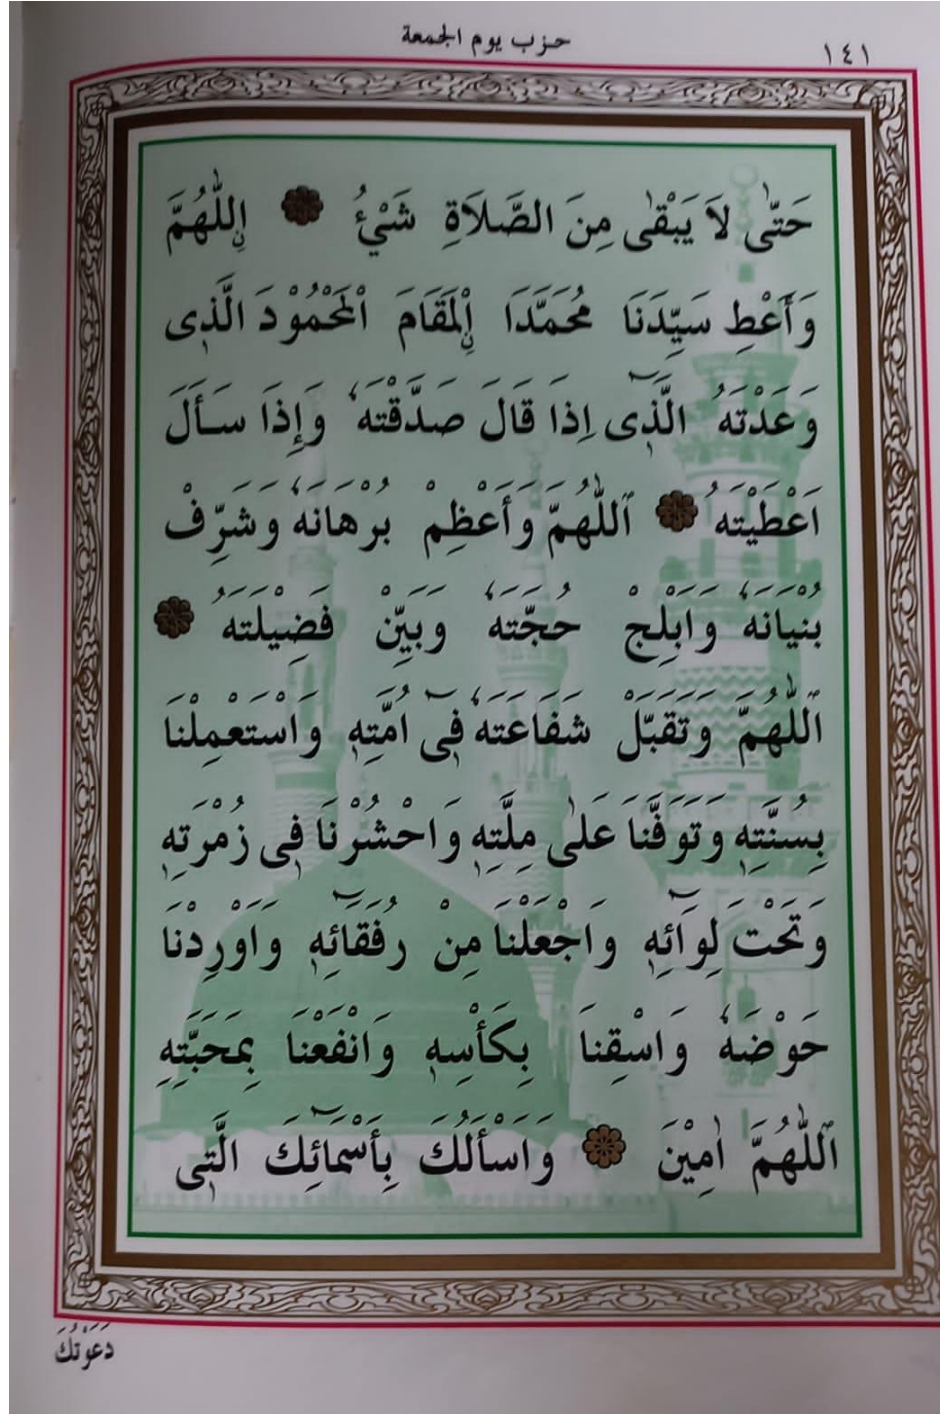 حزب يوم الجمعة
١٤١
حَتّٰى لَا يَبْقٰى مِنَ الصَّلَاةِ شَيْءُ ۞ اِللّٰهُمَّ
وَأَعْطِ سَيِّدَنَا مُحَمَّدَا اِلْمَقَامَ الْمَحْمُوْدَ الَّذِى
وَعَدْتَهُ الَّذِٓى اِذَا قَالَ صَدَّقْتَهُ وَإِذَا سَأَلَ
اَعْطَيْتَهُ ۞ اَللّٰهُمَّ وَأَعْظِمْ بُرْهَانَهُ وَشَرِّفْ
بُنْيَانَهُ وَاَبْلِجْ حُجَّتَهُ وَبَيِّنْ فَضِيْلَتَهُ ۞
اَللّٰهُمَّ وَتَقَبَّلْ شَفَاعَتَهُ فِٓى اُمَّتِهِ وَاسْتَعْمِلْنَا
بِسُنَّتِهِ وَتَوَفَّنَا عَلٰى مِلَّتِهِ وَاحْشُرْنَا فِى زُمْرَتِهِ
وَتَحْتَ لِوَآئِهِ وَاجْعَلْنَا مِنْ رُفَقَآئِهِ وَاَوْرِدْنَا
حَوْضَهُ وَاسْقِنَا بِكَأْسِهِ وَانْفَعْنَا بِمَحَبَّتِهِ
اَللّٰهُمَّ اٰمِيْنَ ۞ وَاَسْأَلُكَ بِأَسْمَآئِكَ الَّتِى
دَعَوْتُكَ